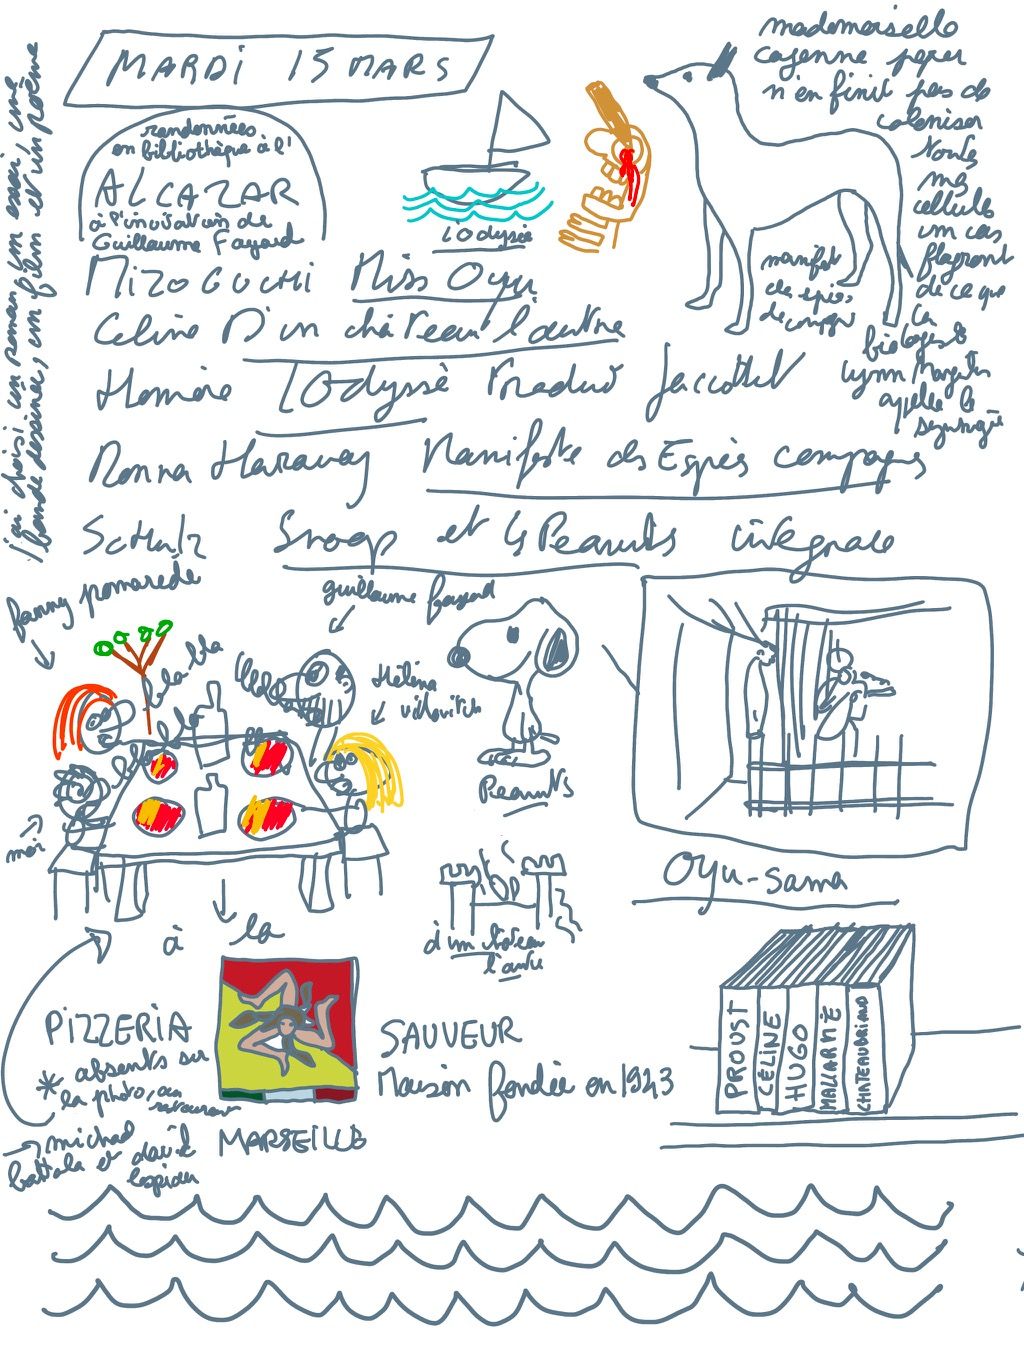 MARDI 15 MARS
randonnées
en bibliothèque à l'
ALCAZAR
à l'invitation de
Guillaume Fayard
j'ai choisi un roman, un essai, une
bande dessinée, un film et un poème
l'odyssée
mademoiselle
cayenne peper
n'en finit pas de
coloniser
toutes
ma
cellules
un cas
flagrant
de ce que
la
biologiste
Lynn Margulis
appelle la
manifest
des espèces
de compagnie
MIZOGUCHI Miss Oyu
Celine D'un château l'autre
Homère l'Odyssée traduit Jaccottet
Donna Haraway Manifeste des Espèces compagnes
Schulz Snoopy et les Peanuts intégrale
fanny pomarède
guillaume fayard
bla bla
bla bla
Hélèna
villovitch
moi
Peanuts
Oyu-sama
d'un château
l'autre
à la
PIZZERIA
SAUVEUR
Maison fondée en 1943
MARSEILLE
* absents sur
la photo, au
restaurant
michael
battala et
lespiau
PROUST
CÉLINE
HUGO
MALLARMÉ
CHATEAUBRIAND